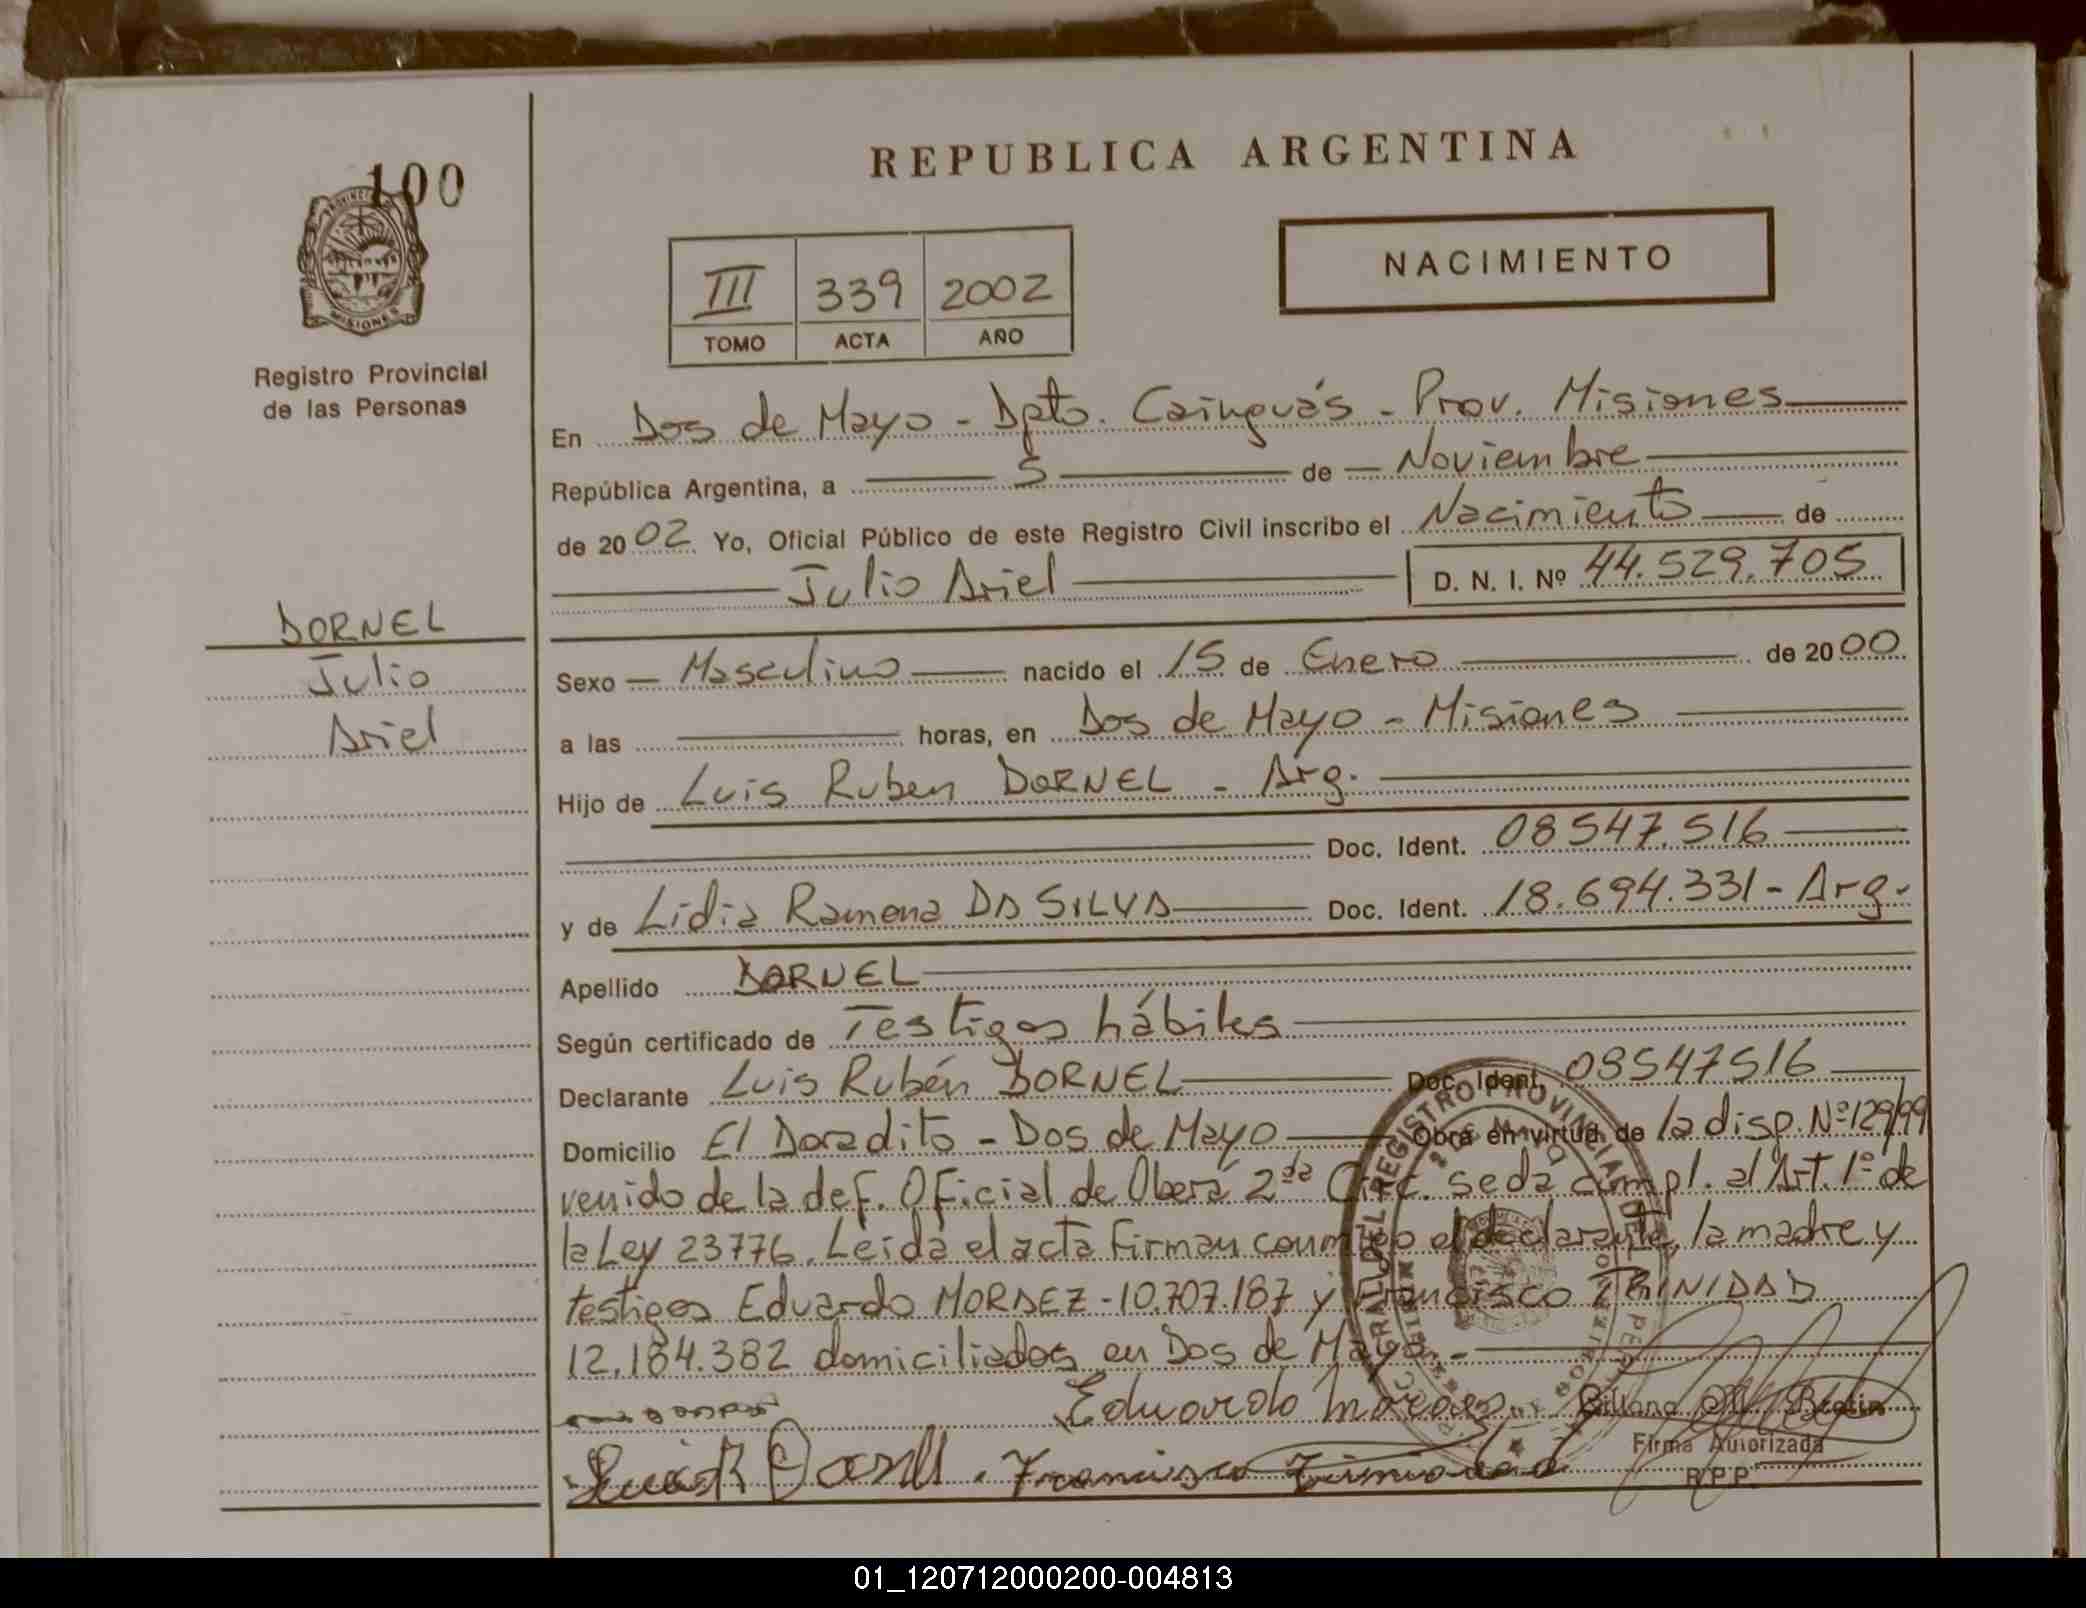 100
REPUBLICA ARGENTINA
MISIONES
Registro Provincial
de las Personas
III 339 2002
TOMO ACTA AÑO
NACIMIENTO
DORNEL
Julio
Ariel
En Dos de Mayo - Dpto. Cainguás - Prov. Misiones
República Argentina, a 5 de Noviembre
de 2002 Yo, Oficial Público de este Registro Civil inscribo el Nacimiento de
Julio Ariel D. N. I. Nº 44.529.705
Sexo Masculino nacido el 15 de Enero de 2000
a las horas, en Dos de Mayo - Misiones
Hijo de Luis Ruben DORNEL - Arg.
Doc. Ident. 08547.516
y de Lidia Ramona DA SILVA Doc. Ident. 18.694.331 - Arg.
Apellido DORNEL
Según certificado de Testigos hábiles
Declarante Luis Rubén DORNEL Doc. Ident. 08547516
Domicilio El Doradito - Dos de Mayo Obra en virtud de la disp. Nº 129/99
venido de la def. Oficial de Oberá 2da Circ. se dá cumpl. al Art. 1º de
la Ley 23776. Leída el acta firman conmigo el declarante, la madre y
testigos Eduardo MORAEZ - 10.707.187 y Francisco TRINIDAD
12.184.382 domiciliados en Dos de Mayo. -
Eduardo Moraes
Francisco Trinidad
Firma Autorizada
R.P.P.
01_120712000200-004813